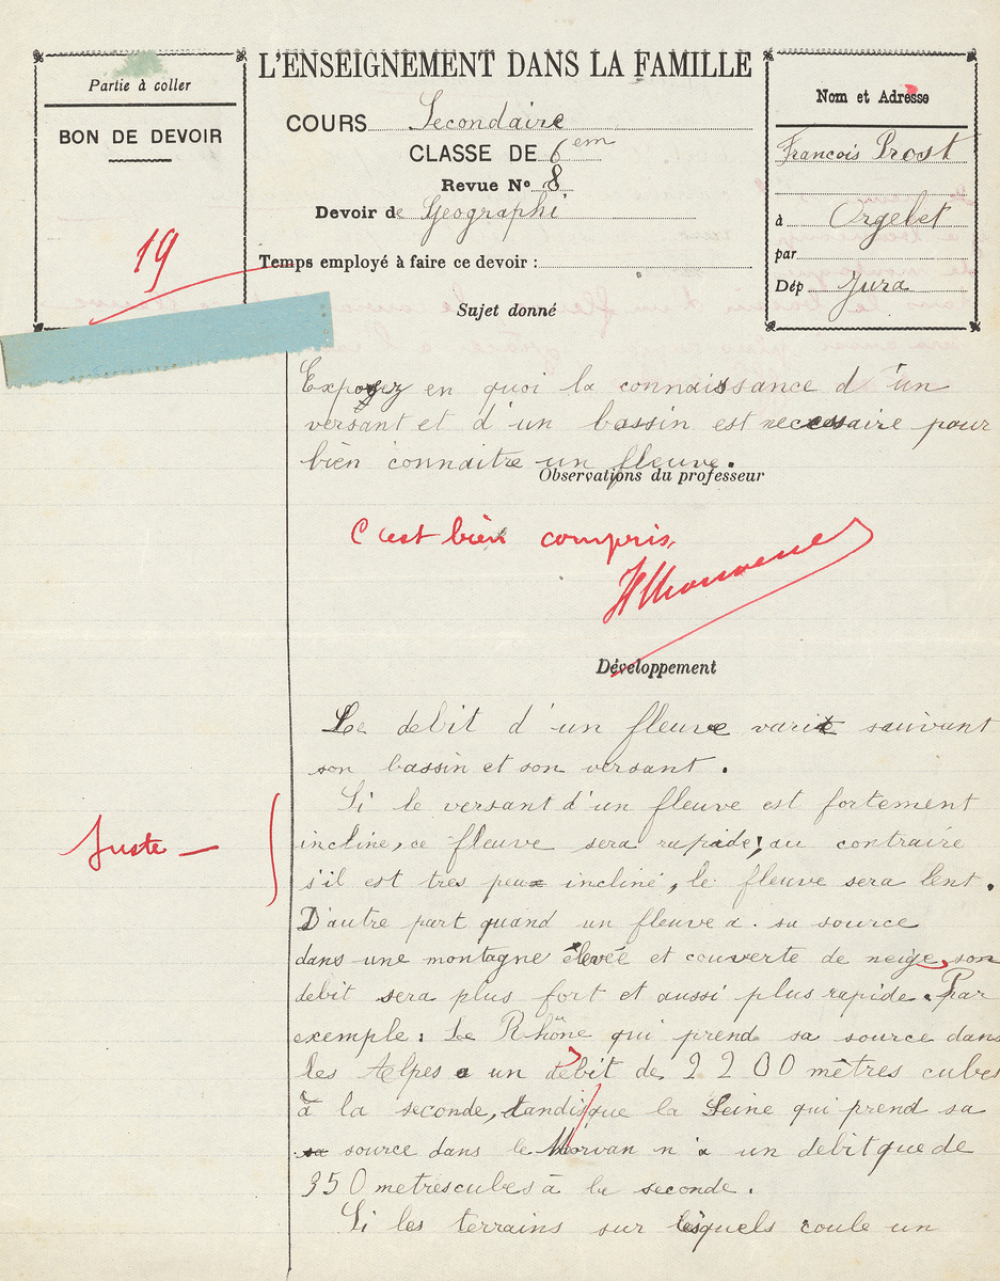 L'ENSEIGNEMENT DANS LA FAMILLE
Partie à coller
BON DE DEVOIR
19
COURS Secondaire
CLASSE DE 6em
Revue No 8
Devoir de Geographi
Temps employé à faire ce devoir :
Nom et Adresse
Francois Prost
à Orgelet
par
Dép Jura
Sujet donné
Exposez en quoi la connaissance d'un
versant et d'un bassin est necessaire pour
bien connaitre un fleuve.
Observations du professeur
C'est bien compris,
Développement
Le debit d'un fleuve varie suivant
son bassin et son versant.
Si le versant d'un fleuve est fortement
incline, ce fleuve sera rapide; au contraire
s'il est tres peu incliné, le fleuve sera lent.
Juste —
D'autre part quand un fleuve a sa source
dans une montagne élevée et couverte de neige, son
debit sera plus fort et aussi plus rapide. Par
exemple: Le Rhône qui prend sa source dans
les Alpes a un débit de 2200 mètres cubes
à la seconde, tandis que la Seine qui prend sa
sa source dans le Morvan n'a un debit que de
350 metres cubes à la seconde.
Si les terrains sur lesquels coule un